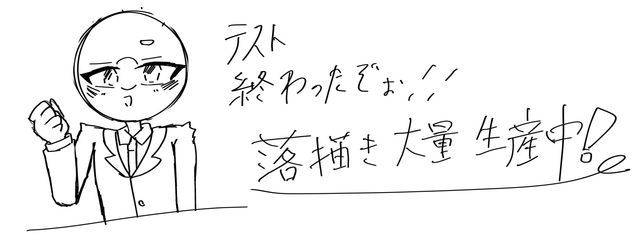 テスト
終わったぞぉ!!
落描き大量生産中!